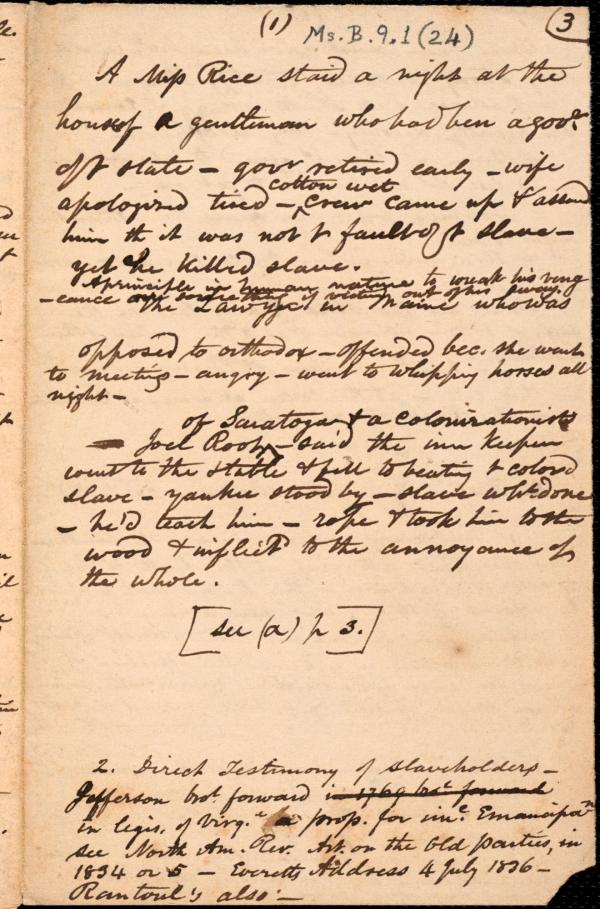 (1) Ms. B. 9. 1 (24) 3
A Miss Rice staid a night at the
house of a gentleman who had been a govr
of t state – govr retired early – wife
apologized tired – cotton wet
crew came up &
him th it was not t fault of t slave –
yet he killed slave.
A principle in human nature to wreak his veng
-eance on something if victim out of his way.
The Lawyer in Maine who was
opposed to orthodox – offended bec. she went
to meeting – angry – went to whipping horses all
night –
of Saratoga & a colonizationist
– Joel Root – said the inn keeper
went to the stable & fell to beating t colord
slave – yankee stood by – slave
– he'd teach him – rope & took him to the
wood & inflictd to the annoyance of
the whole.
[see (a) p 3.]
2. Direct Testimony of slaveholders –
Jefferson brot forward in 1769 brot forward
in legis. of Virga a prop. for Emancipan
see North Am. Rev. Art. on the Old parties, in
1834 or 5 – Everetts Address 4 July 1836 –
Rantoul's also –